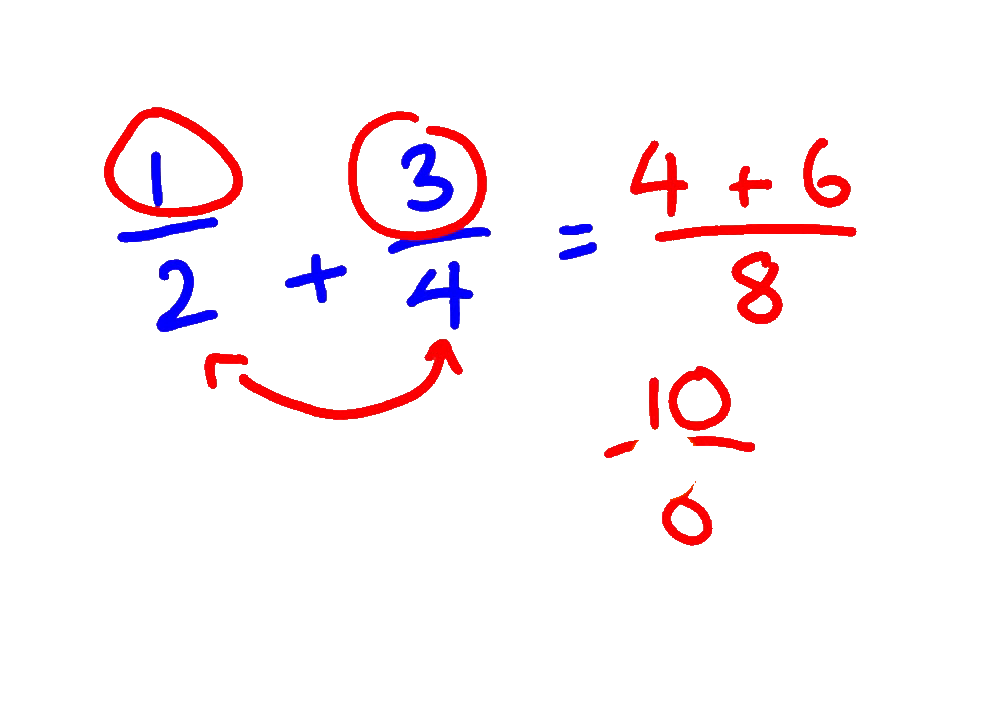 1/2 + 3/4 = (4 + 6)/8
10/